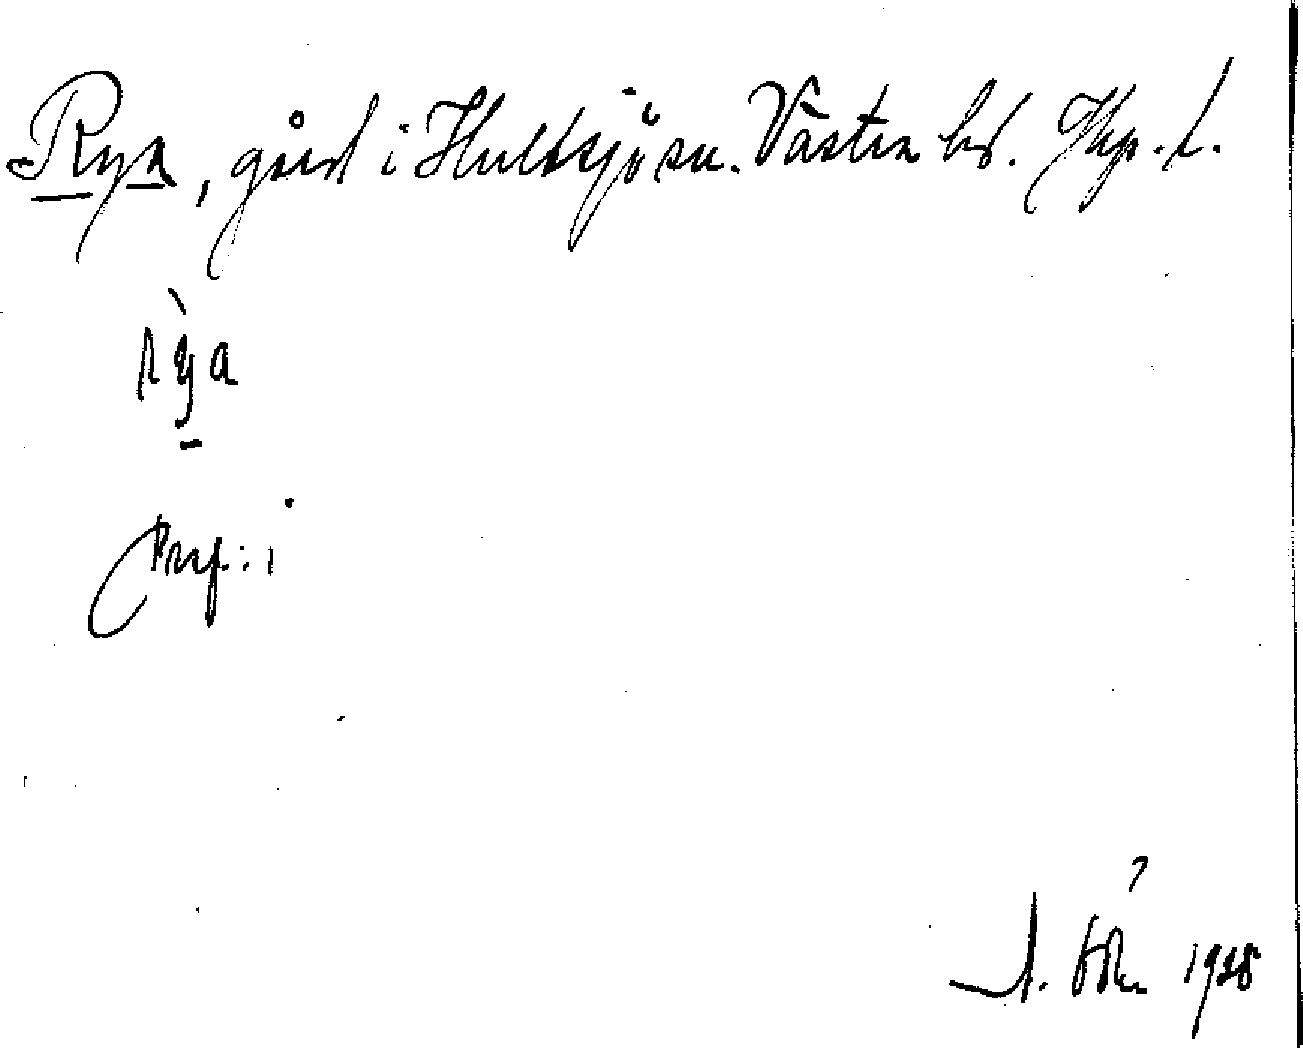 Rya, gård i Hultsjö sn. Västra hd. Jkp. l.
rỳa
Prep: i
1925